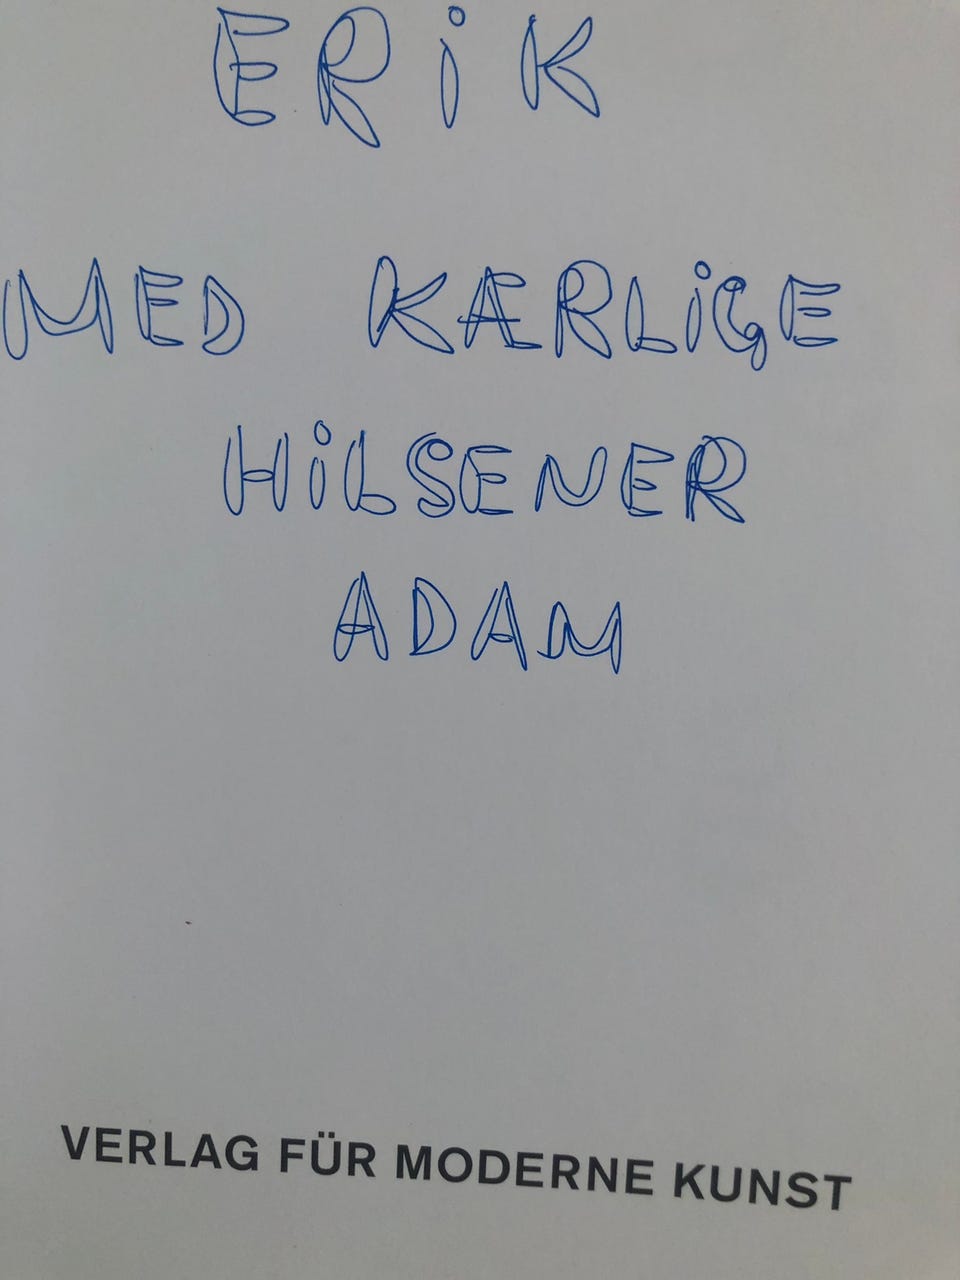 ERiK
MED KÆRLiGE
HiLSENER
ADAM
VERLAG FÜR MODERNE KUNST